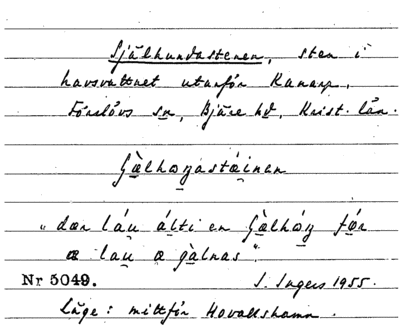 Själhundastenen, sten i
havsvattnet utanför Kanarp,
Förslövs sn, Bjäre hd, Krist. län.
Sælhoŋastáinen
„ dær láu álti en sælhóŋ för
æ lau æ sælnas ".
Nr 5049. I. Ingers 1955.
Läge: mittför Hovallshamn.